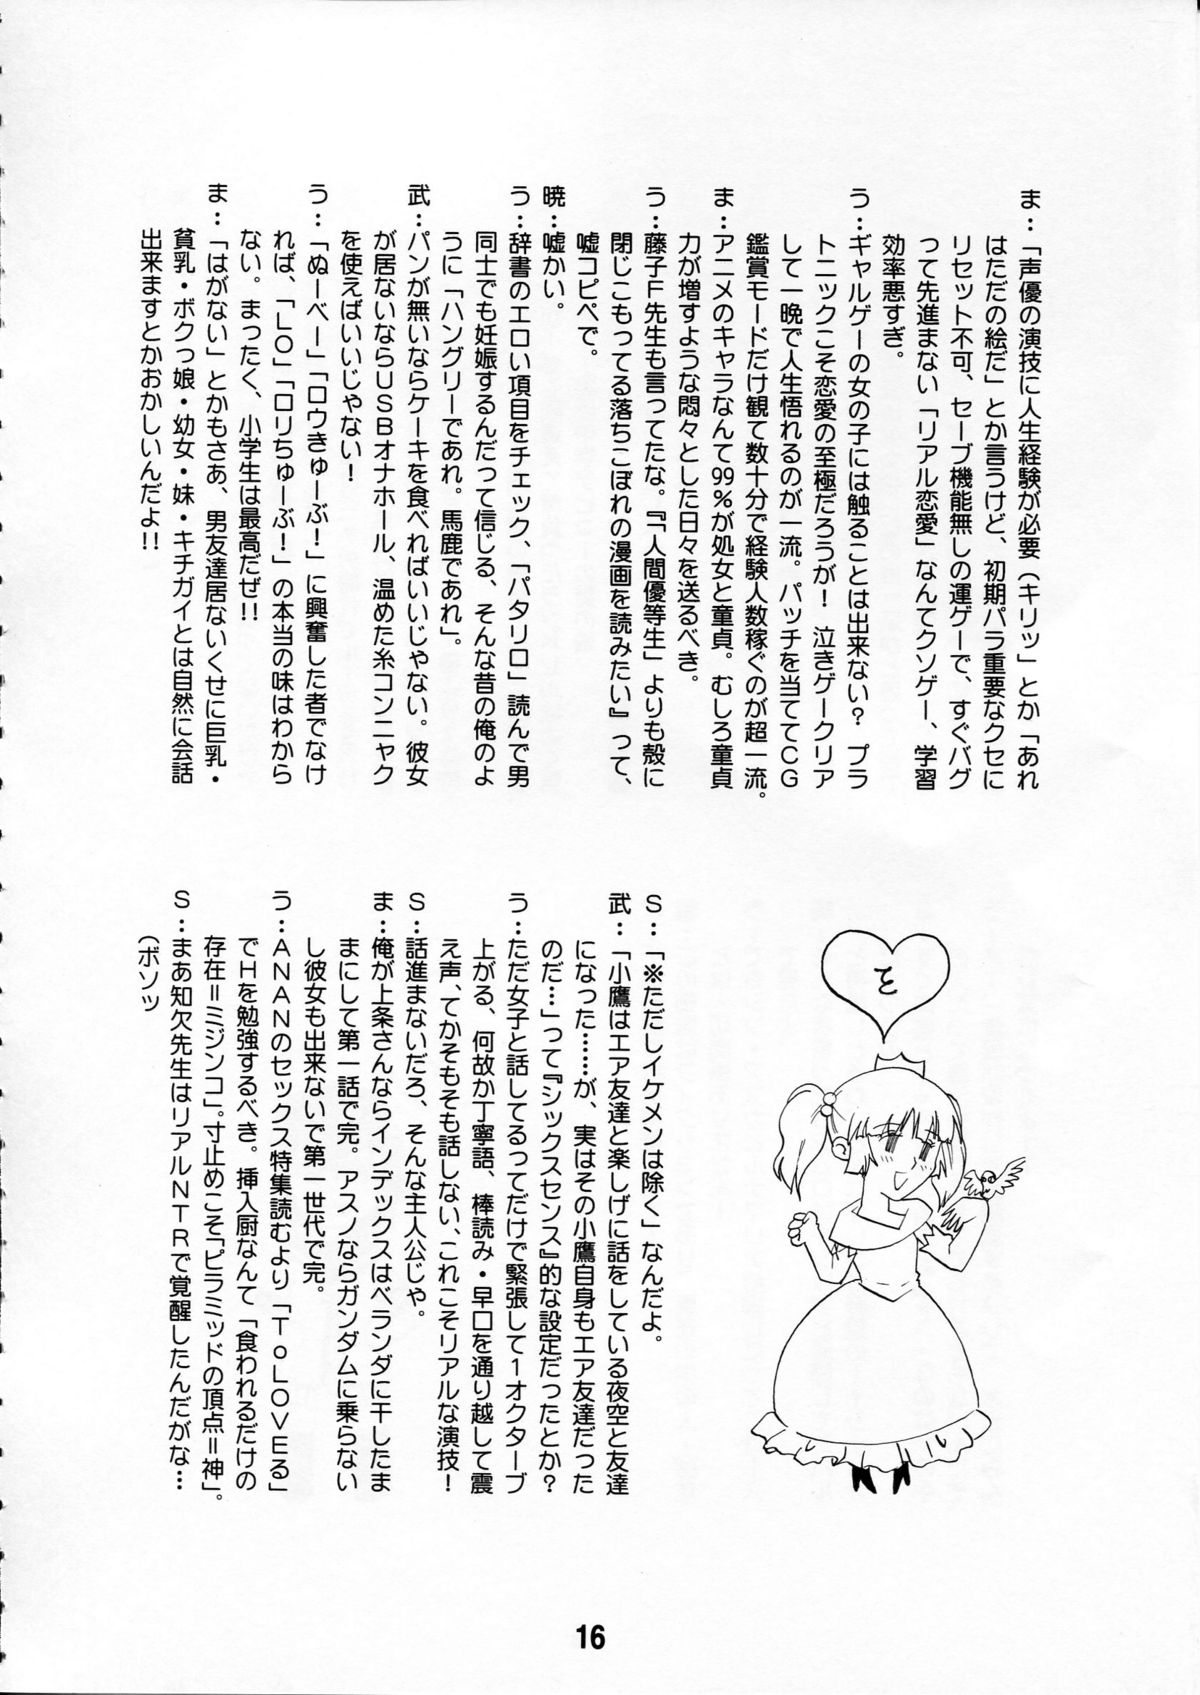 ま：「声優の演技に人生経験が必要（キリッ」とか「あれ
はただの絵だ」とか言うけど、初期パラ重要なクセに
リセット不可、セーブ機能無しの運ゲーで、すぐバグ
って先進まない「リアル恋愛」なんてクソゲー、学習
効率悪すぎ。
う：ギャルゲーの女の子には触ることは出来ない？　プラ
トニックこそ恋愛の至極だろうが！　泣きゲークリア
して一晩で人生悟れるのが一流。パッチを当ててＣＧ
鑑賞モードだけ観て数十分で経験人数稼ぐのが超一流。
ま：アニメのキャラなんて99％が処女と童貞。むしろ童貞
力が増すような悶々とした日々を送るべき。
う：藤子Ｆ先生も言ってたな。『「人間優等生」よりも殻に
閉じこもってる落ちこぼれの漫画を読みたい』って、
嘘コピペで。
暁：嘘かい。
う：辞書のエロい項目をチェック、「パタリロ」読んで男
同士でも妊娠するんだって信じる、そんな昔の俺のよ
うに「ハングリーであれ。馬鹿であれ」。
武：パンが無いならケーキを食べればいいじゃない。彼女
が居ないならＵＳＢオナホール、温めた糸コンニャク
を使えばいいじゃない！
う：「ぬーべー」「ロウきゅーぶ！」に興奮した者でなけ
れば、「ＬＯ」「ロリちゅーぶ！」の本当の味はわから
ない。まったく、小学生は最高だぜ!!
ま：「はがない」とかもさあ、男友達居ないくせに巨乳・
貧乳・ボクっ娘・幼女・妹・キチガイとは自然に会話
出来ますとかおかしいんだよ!!
と
Ｓ：「※ただしイケメンは除く」なんだよ。
武：「小鷹はエア友達と楽しげに話をしている夜空と友達
になった……が、実はその小鷹自身もエア友達だった
のだ…」って『シックスセンス』的な設定だったとか？
う：ただ女子と話してるってだけで緊張して１オクターブ
上がる、何故か丁寧語、棒読み・早口を通り越して震
え声、てかそもそも話しない、これこそリアルな演技！
Ｓ：話進まないだろ、そんな主人公じゃ。
ま：俺が上条さんならインデックスはベランダに干したま
まにして第一話で完。アスノならガンダムに乗らない
し彼女も出来ないで第一世代で完。
う：ＡＮＡＮのセックス特集読むより「ＴｏＬＯＶＥる」
でＨを勉強するべき。挿入厨なんて「食われるだけの
存在＝ミジンコ」。寸止めこそ「ピラミッドの頂点＝神」。
Ｓ：まあ知欠先生はリアルＮＴＲで覚醒したんだがな…
（ボソッ
16